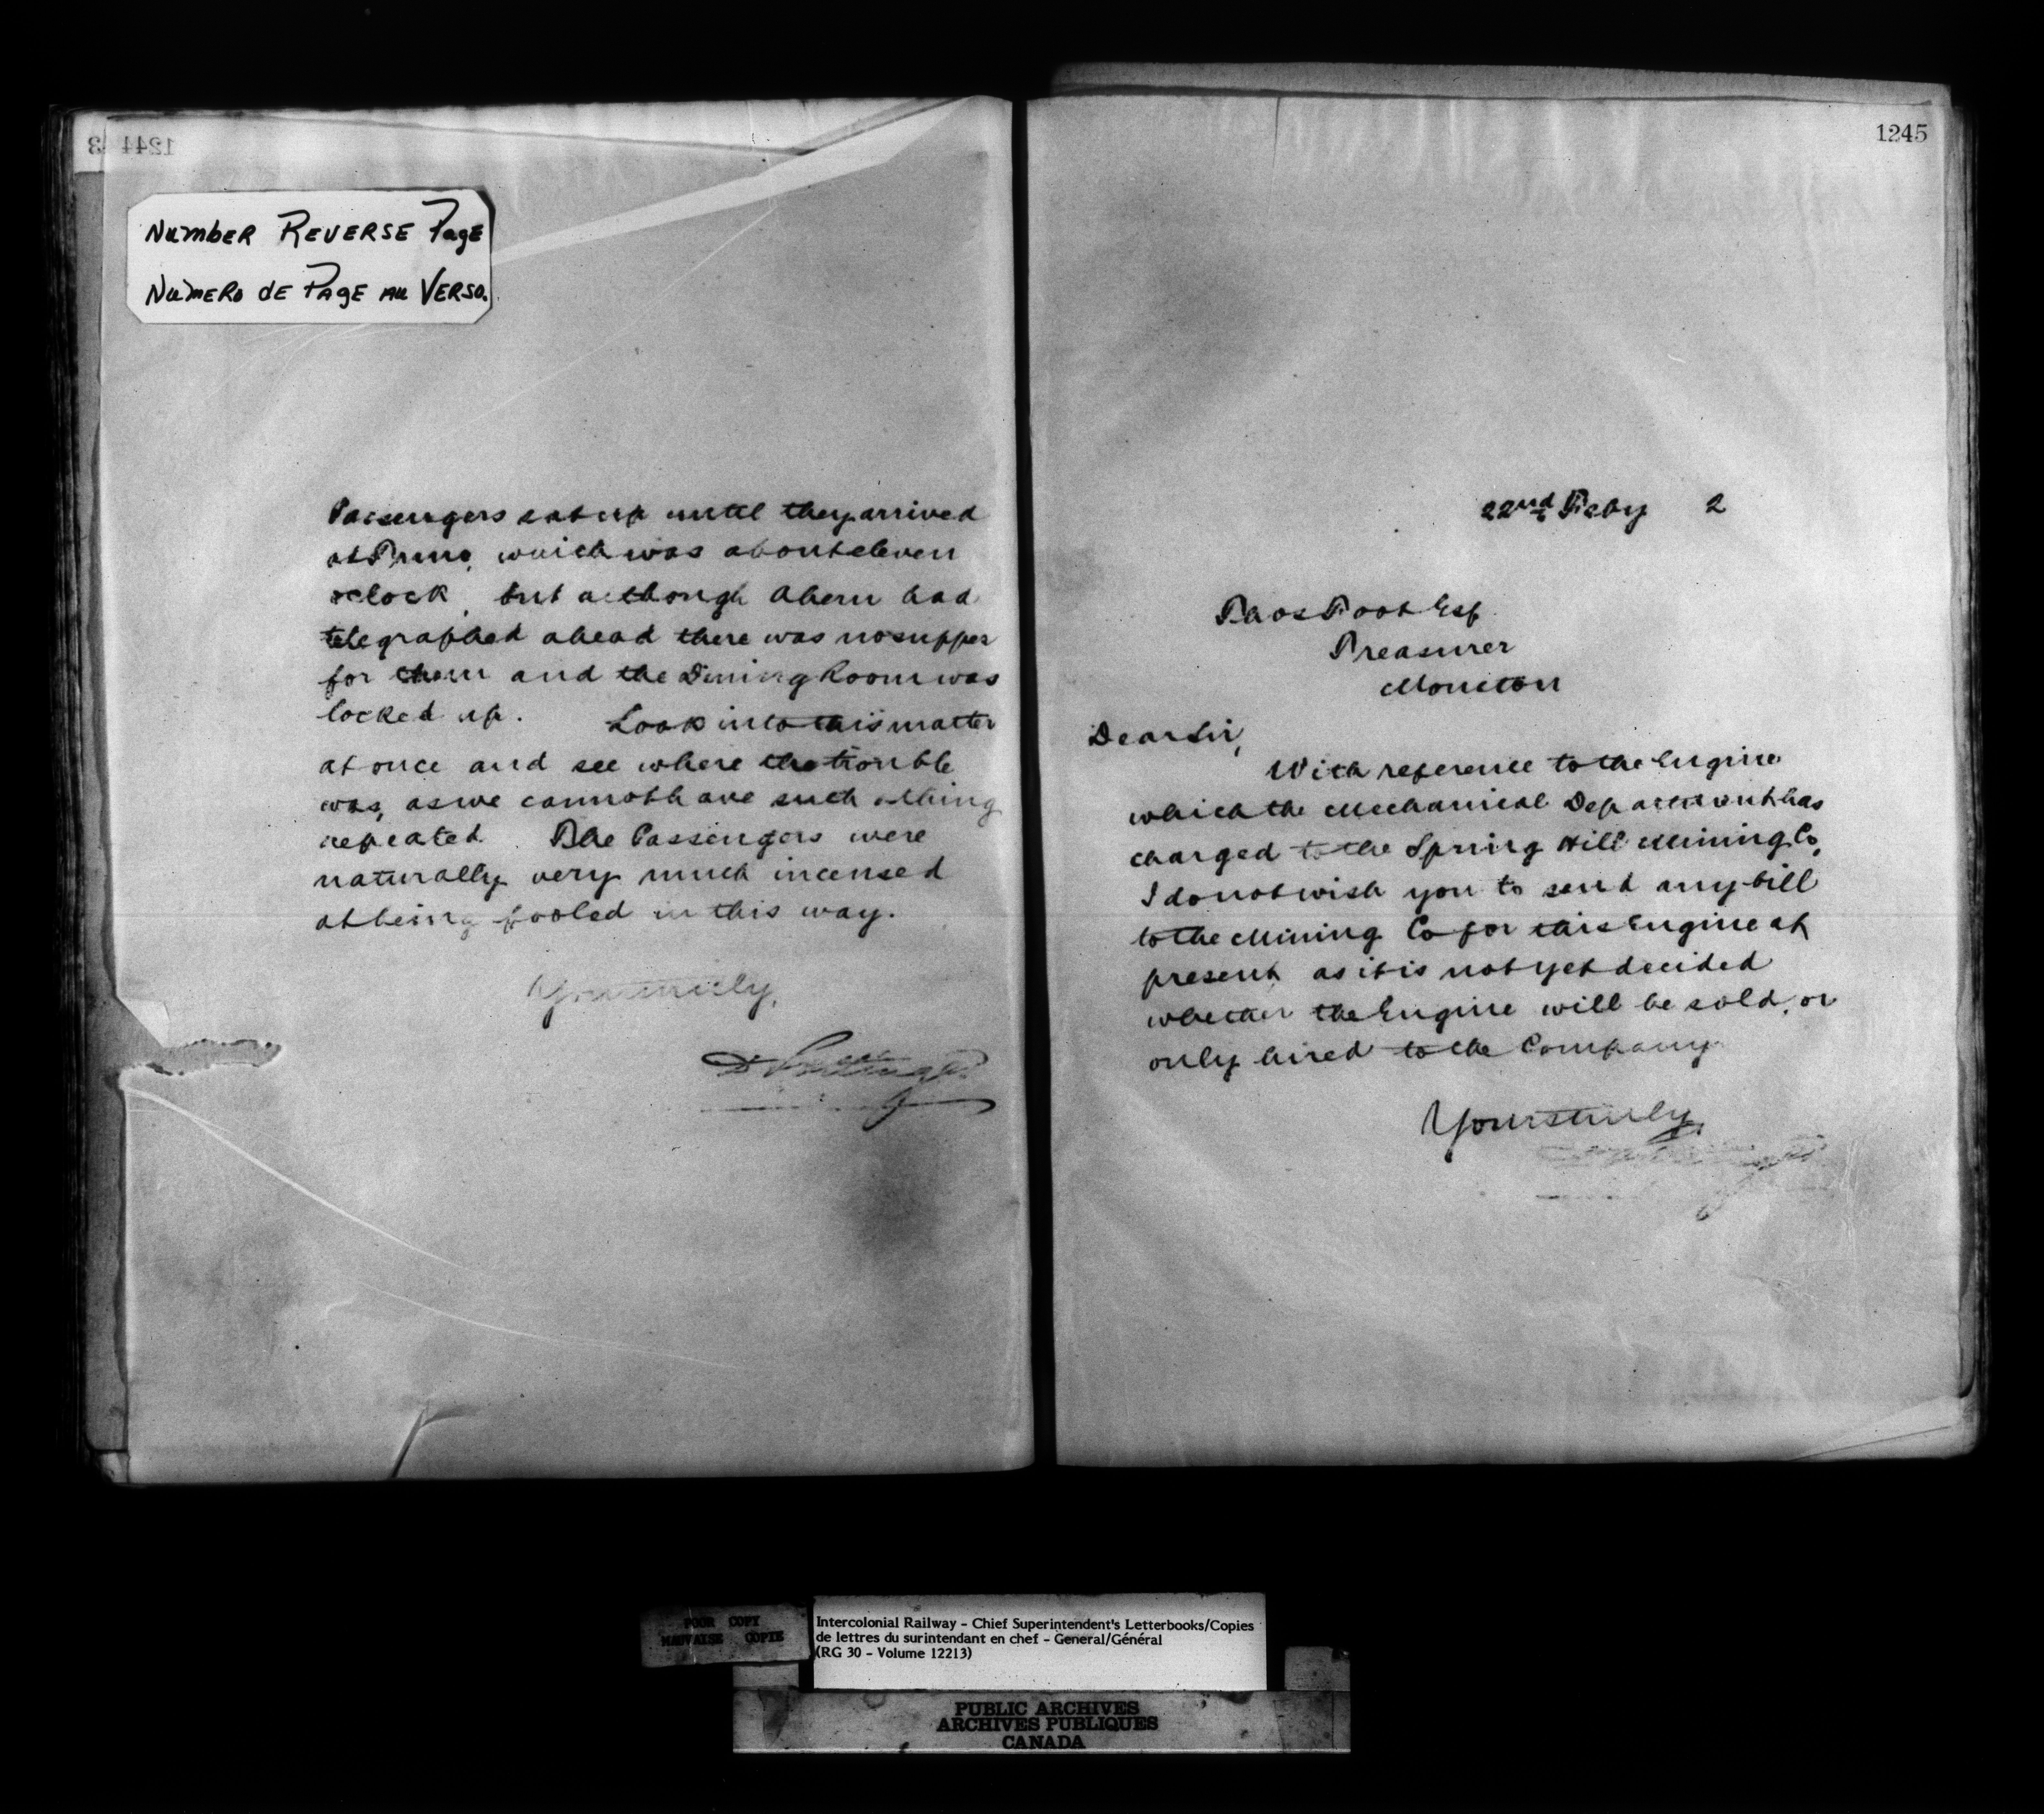 1244
NumbeR ReveRSE PagE
NumERo dE PAgE Au VERSO.
Passengers sat up until they arrived
at Truro, which was about eleven
oclock, but although Ahern had
telegraphed ahead there was no supper
for them and the Dining Room was
locked up. Look into this matter
at once and see where the trouble
was, as we cannot have such a thing
repeated. The Passengers were
naturally very much incensed
at being fooled in this way.
Yours truly,
D Pottinger
1245
22nd Feby 2
Thos Foot Esq
Treasurer
Moncton
Dear Sir,
With reference to the Engine
which the Mechanical Department has
charged to the Spring Hill Mining Co,
I do not wish you to send any bill
to the Mining Co for this Engine at
present, as it is not yet decided
whether the Engine will be sold, or
only hired to the Company.
Yours truly,
POOR COPY
MAUVAISE COPIE
Intercolonial Railway - Chief Superintendent's Letterbooks/Copies
de lettres du surintendant en chef - General/Général
(RG 30 - Volume 12213)
PUBLIC ARCHIVES
ARCHIVES PUBLIQUES
CANADA